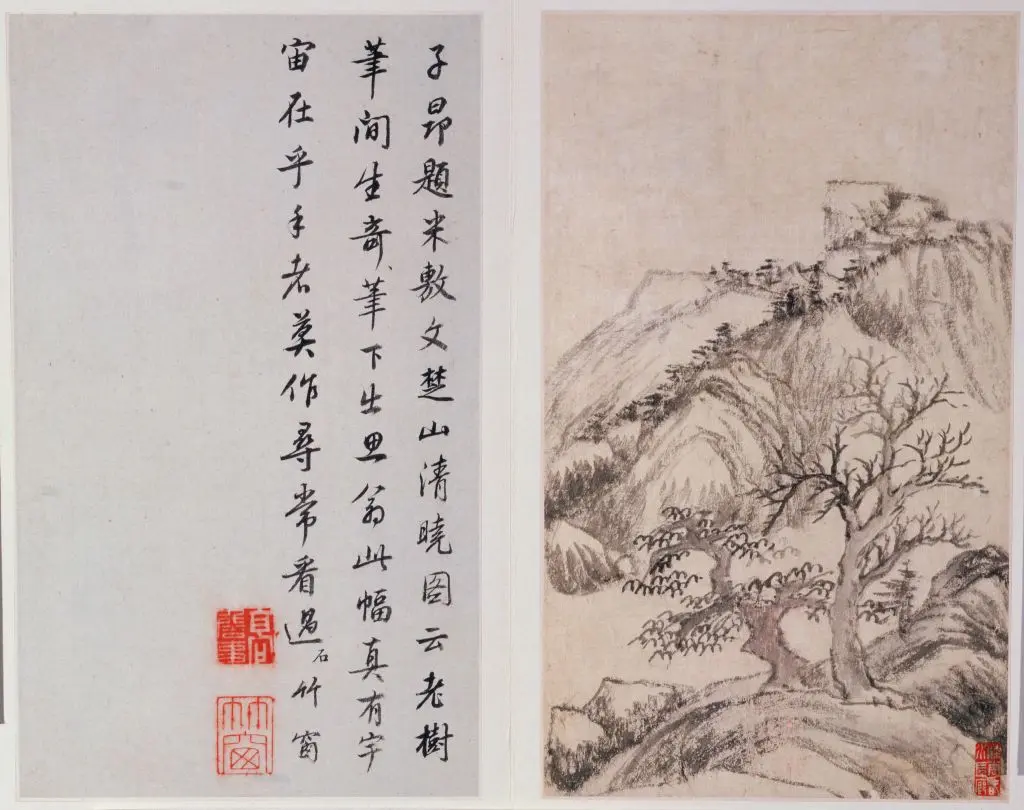 子昂題米敷文楚山清曉图云老樹
筆间生奇筆下出思翁此幅真有宇
宙在乎手者莫作尋常看過
石竹窗
竹窗